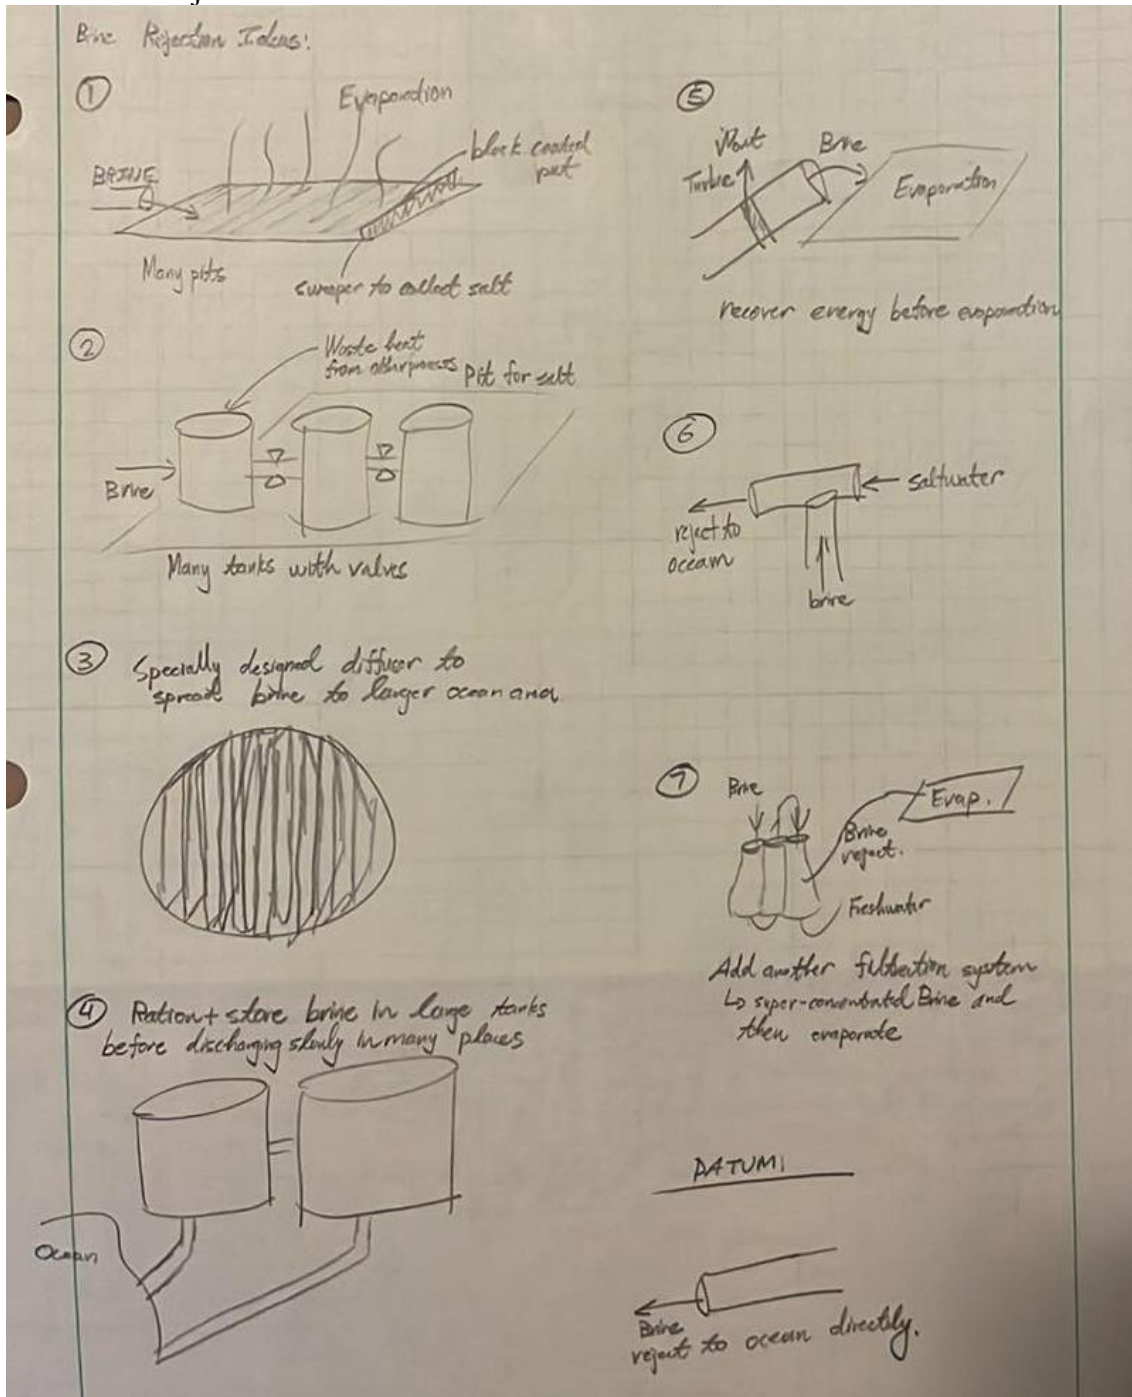 Brine Rejection Ideas:
①
Evaporation
BRINE
black coated
pit
Many pits
sweeper to collect salt
②
Waste heat
from other processes
Pit for salt
Brine
Many tanks with valves
③ Specially designed diffusor to
spread brine to larger ocean area
④ Ration + store brine in large tanks
before discharging slowly in many places
Ocean
⑤
Wout
Turbine
Brine
Evaporation
recover energy before evaporation
⑥
saltwater
reject to
ocean
brine
⑦
Brine
Evap.
Brine
reject.
Freshwater
Add another filtration system
↳ super-concentrated Brine and
then evaporate
DATUM:
Brine
reject to ocean directly.